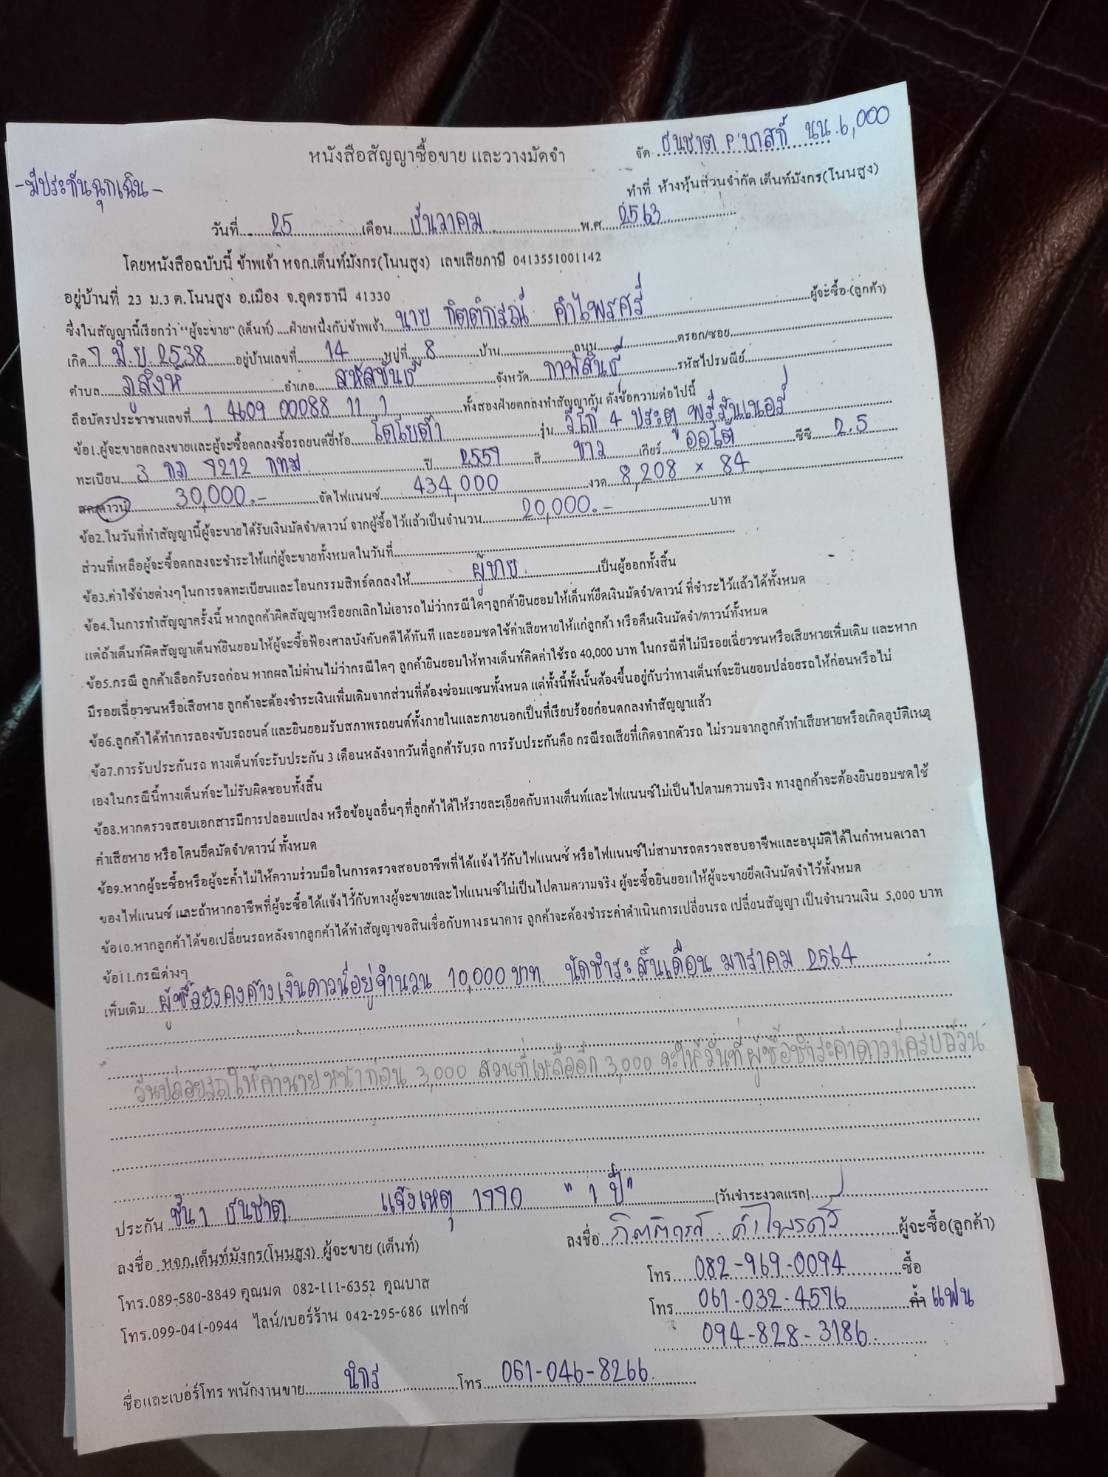 หนังสือสัญญาซื้อขาย และวางมัดจำ
จัด ธนชาต P'บาสก์ นน.6,000
-มีประกันฉุกเฉิน-
ทำที่ ห้างหุ้นส่วนจำกัด เต็นท์มังกร(โนนสูง)
วันที่ 25 เดือน ธันวาคม พ.ศ 2563
โดยหนังสือฉบับนี้ ข้าพเจ้า หจก.เต็นท์มังกร(โนนสูง) เลขเสียภาษี 0413551001142
อยู่บ้านที่ 23 ม.3 ต.โนนสูง อ.เมือง จ.อุดรธานี 41330
ซึ่งในสัญญานี้เรียกว่า "ผู้จะขาย" (เต็นท์) ฝ่ายหนึ่งกับข้าพเจ้า นาย กิตติกรณ์ คำไพรศรี ผู้จะซื้อ (ลูกค้า)
เกิด 7 มิ.ย. 2538 อยู่บ้านเลขที่ 14 หมู่ที่ 8 บ้าน ถนน ตรอก/ซอย
ตำบล ภูสิงห์ อำเภอ สหัสขันธ์ จังหวัด กาฬสินธุ์ รหัสไปรษณีย์
ถือบัตรประชาชนเลขที่ 1 4609 00088 11 1 ทั้งสองฝ่ายตกลงทำสัญญากัน ดังข้อความต่อไปนี้
ข้อ1.ผู้จะขายตกลงขายและผู้จะซื้อตกลงซื้อรถยนต์ยี่ห้อ โตโยต้า รุ่น วีโก้ 4 ประตู พรีรันเนอร์
ทะเบียน 3 9212 กทม ปี 2551 สี ขาว เกียร์ ออโต้ ซีซี 2.5
ดาวน์ 30,000.- จัดไฟแนนซ์ 434,000 งวด 8,208 × 84
ข้อ2.ในวันที่ทำสัญญานี้ผู้จะขายได้รับเงินมัดจำ/ดาวน์ จากผู้ซื้อไว้แล้วเป็นจำนวน 20,000.- บาท
ส่วนที่เหลือผู้จะซื้อตกลงจะชำระให้แก่ผู้จะขายทั้งหมดในวันที่
ข้อ3.ค่าใช้จ่ายต่างๆในการจดทะเบียนและโอนกรรมสิทธ์ตกลงให้ ผู้ขาย เป็นผู้ออกทั้งสิ้น
ข้อ4.ในการทำสัญญาครั้งนี้ หากลูกค้าผิดสัญญาหรือยกเลิกไม่เอารถไม่ว่ากรณีใดๆลูกค้ายินยอมให้เต็นท์ยึดเงินมัดจำ/ดาวน์ ที่ชำระไว้แล้วได้ทั้งหมด
แต่ถ้าเต็นท์ผิดสัญญาเต็นท์ยินยอมให้ผู้จะซื้อฟ้องศาลบังคับคดีได้ทันที และยอมชดใช้ค่าเสียหายให้แก่ลูกค้า หรือคืนเงินมัดจำ/ดาวน์ทั้งหมด
ข้อ5.กรณี ลูกค้าเลือกรับรถก่อน หากผลไม่ผ่านไม่ว่ากรณีใดๆ ลูกค้ายินยอมให้ทางเต็นท์คิดค่าใช้รถ 40,000 บาท ในกรณีที่ไม่มีรอยเฉี่ยวชนหรือเสียหายเพิ่มเติม และหาก
มีรอยเฉี่ยวชนหรือเสียหาย ลูกค้าจะต้องชำระเงินเพิ่มเติมจากส่วนที่ต้องซ่อมแซมทั้งหมด แต่ทั้งนี้ทั้งนั้นต้องขึ้นอยู่กับว่าทางเต็นท์จะยินยอมปล่อยรถให้ก่อนหรือไม่
ข้อ6.ลูกค้าได้ทำการลองขับรถยนต์ และยินยอมรับสภาพรถยนต์ทั้งภายในและภายนอกเป็นที่เรียบร้อยก่อนตกลงทำสัญญาแล้ว
ข้อ7.การรับประกันรถ ทางเต็นท์จะรับประกัน 3 เดือนหลังจากวันที่ลูกค้ารับรถ การรับประกันคือ กรณีรถเสียที่เกิดจากตัวรถ ไม่รวมจากลูกค้าทำเสียหายหรือเกิดอุบัติเหตุ
เองในกรณีนี้ทางเต็นท์จะไม่รับผิดชอบทั้งสิ้น
ข้อ8.หากตรวจสอบเอกสารมีการปลอมแปลง หรือข้อมูลอื่นๆที่ลูกค้าได้ให้รายละเอียดกับทางเต็นท์และไฟแนนซ์ไม่เป็นไปตามความจริง ทางลูกค้าจะต้องยินยอมชดใช้
ค่าเสียหาย หรือโดนยึดมัดจำ/ดาวน์ ทั้งหมด
ข้อ9.หากผู้จะซื้อหรือผู้จะค้ำไม่ให้ความร่วมมือในการตรวจสอบอาชีพที่ได้แจ้งไว้กับไฟแนนซ์ หรือไฟแนนซ์ไม่สามารถตรวจสอบอาชีพและอนุมัติได้ในกำหนดเวลา
ของไฟแนนซ์ และถ้าหากอาชีพที่ผู้จะซื้อได้แจ้งไว้กับทางผู้จะขายและไฟแนนซ์ไม่เป็นไปตามความจริง ผู้จะซื้อยินยอมให้ผู้จะขายยึดเงินมัดจำไว้ทั้งหมด
ข้อ10.หากลูกค้าได้ขอเปลี่ยนรถหลังจากลูกค้าได้ทำสัญญาขอสินเชื่อกับทางธนาคาร ลูกค้าจะต้องชำระค่าดำเนินการเปลี่ยนรถ เปลี่ยนสัญญา เป็นจำนวนเงิน 5,000 บาท
ข้อ11.กรณีต่างๆ
เพิ่มเติม ผู้ซื้อยังคงค้างเงินดาวน์อยู่จำนวน 10,000 บาท นัดชำระสิ้นเดือน มกราคม 2564
วันปล่อยรถให้ค่านายหน้าก่อน 3,000 ส่วนที่เหลืออีก 3,000 จะให้วันที่ผู้ซื้อชำระค่าดาวน์ครบถ้วน
ประกัน ชั้น 1 ธนชาต แจ้งเหตุ 1770 "1 ปี" (วันชำระงวดแรก)
ลงชื่อ หจก.เต็นท์มังกร(โนนสูง) ผู้จะขาย (เต็นท์)
ลงชื่อ กิตติกรณ์ คำไพรศรี ผู้จะซื้อ(ลูกค้า)
โทร.089-580-8849 คุณมด 082-111-6352 คุณบาส
โทร 082-969-0094 ซื้อ
โทร.099-041-0944 ไลน์/เบอร์ร้าน 042-295-686 แฟกซ์
โทร 061-032-4576 ค้ำ แฟน
094-828-3186
ชื่อและเบอร์โทร พนักงานขาย นิกร โทร 061-046-8266